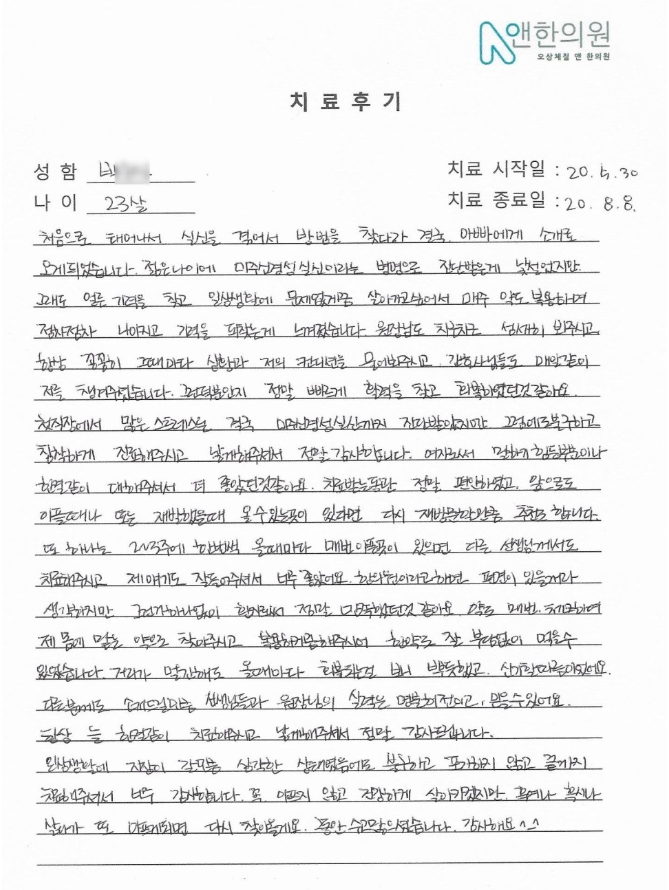 앤한의원
오상체질 앤 한의원
치 료 후 기
성 함
치료 시작일 : 20. 5. 30
나 이 23살
치료 종료일 : 20. 8. 8.
처음으로 태어나서 실신을 겪어서 방법을 찾다가 결국, 아빠에게 소개로
오게되었습니다. 젊은나이에 미주신경성 실신이라는 병명으로 진단받은게 낯설었지만
그래도 얼른 기력을 찾고 일상생활에 문제없게끔 살아가고싶어서 매주 약도 복용하며
점차점차 나아지고 기력을 되찾는게 느껴졌습니다. 원장님도 차근차근 섬세히 봐주시고
항상 꼼꼼히 그때마다 상황과 저의 컨디션을 물어봐주시고, 간호사님들도 매일같이
저를 챙겨주셨습니다. 그덕분인지 정말 빠르게 활력을 찾고 회복하였던것같아요.
현직장에서 많은 스트레스로 결국 미주신경성실신까지 진단받았지만 그럼에도불구하고
침착하게 진료해주시고 낫게해주셔서 정말 감사합니다. 여자로서 말하기 힘든부분이나
한결같이 대해주셔서 더 좋았던것같아요. 치료받는동안 정말 편안하였고, 앞으로도
아플때나 또는 재발했을때 올수있는곳이 있다면 다시 재방문할만큼 추천도 합니다.
또 하나는 2~3주에 한번씩 올때마다 매번 아픈곳이 있으면 다른 선생님께서도
치료해주시고 제 얘기도 잘들어주셔서 너무 좋았어요. 한의원이라고하면 편견이 있을거라
생각하지만 그런거하나없이 환자로서 정말 만족했던것 같아요 약도 매번, 체크하여
제 몸에 맞는 약으로 찾아주시고 복용하게끔해주시어 한약도 잘 부담없이 먹을수
있었습니다. 거리가 멀지해도 올때마다 회복되는걸 보니 뿌듯했고, 신기할따름이었어요.
다른분께도 소개드릴만큼 선생님들과 원장님의 실력은 명불허전이고, 믿을수있어요.
항상 늘 한결같이 치료해주시고 낫게해주셔서 정말 감사드립니다.
일상생활에 지장이 갈만큼 심각한 상태였음에도 불구하고 포기하지 않고 끝까지
치료해주셔서 너무 감사합니다. 꼭, 아프지 않고 건강하게 살아가겠지만, 혹여나 혹시나
살다가 또 아프게되면 다시 찾아올게요. 동안 수고많으셨습니다. 감사해요^^